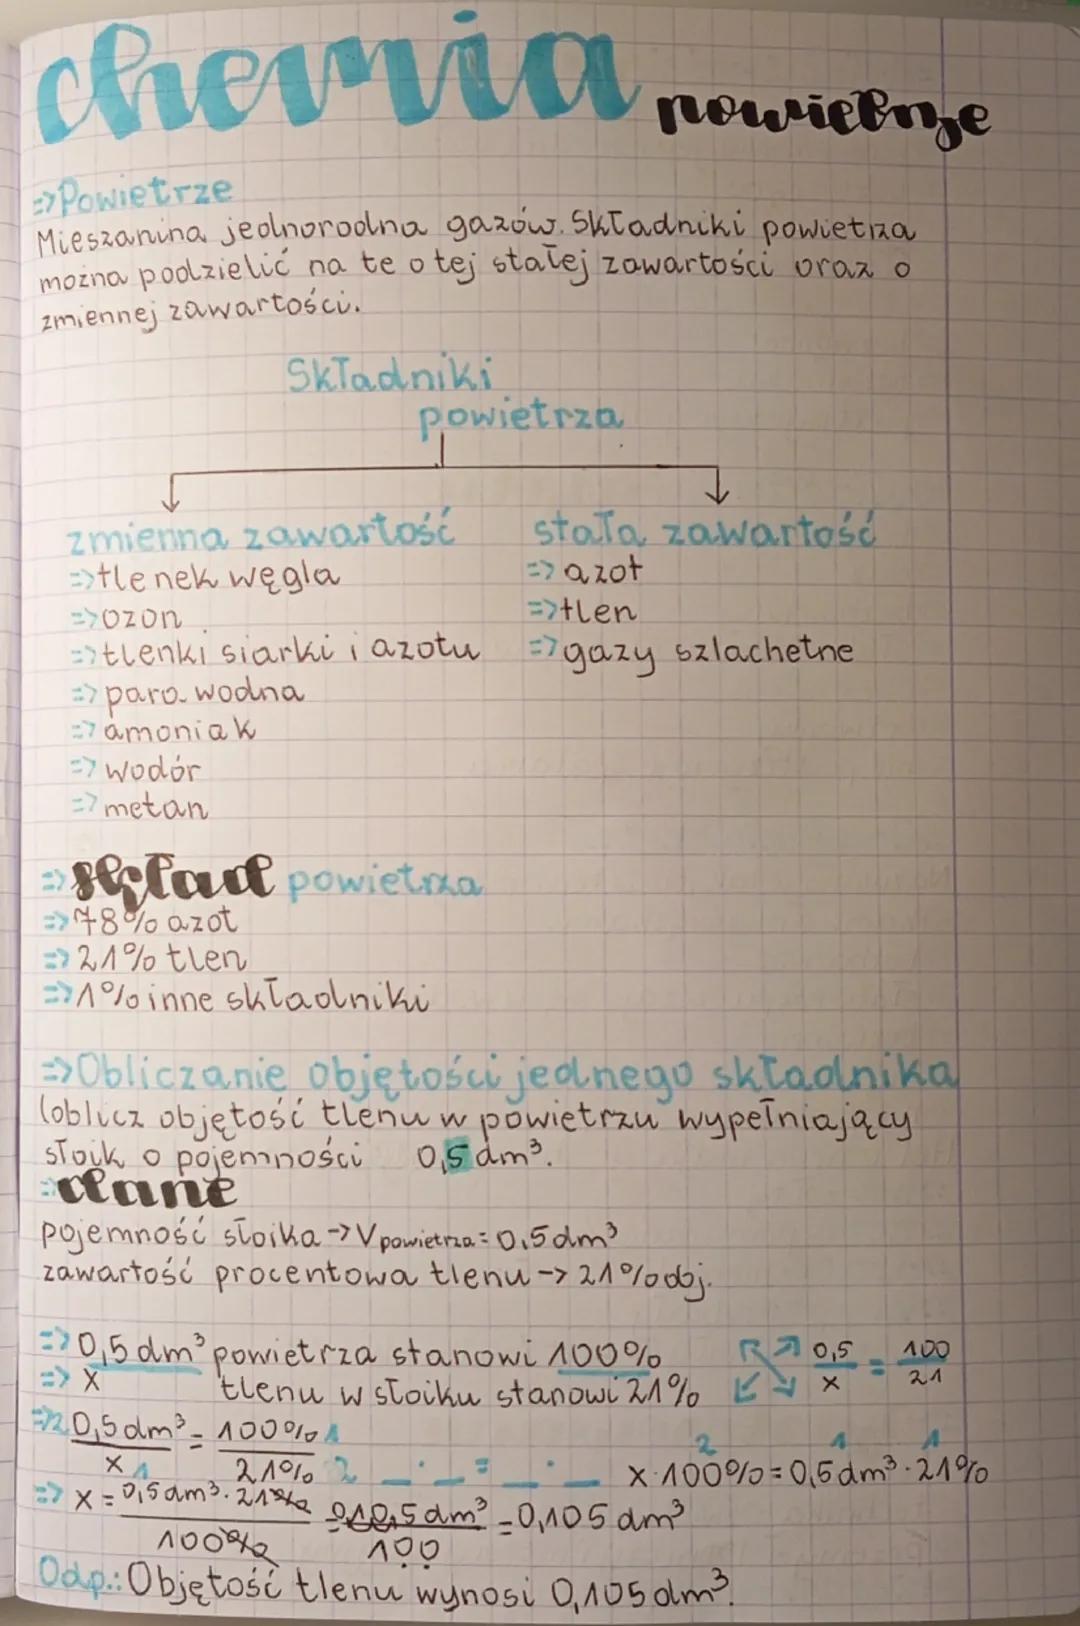 chemia powietrze
=> Powietrze
Mieszanina jednorodna gazów. Składniki powietrza
można podzielić na te o tej stałej zawartości oraz o
zmiennej zawartości.
Składniki
powietrza
zmienna zawartość
=> tlenek węgla
=> ozon
=> tlenki siarki i azotu
=> para wodna
=> amoniak
=> wodór
=> metan
stała zawartość
=> azot
=> tlen
=> gazy szlachetne
=> skład powietrza
=> 78% azot
=> 21% tlen
=> 1% inne składniki
=> Obliczanie objętości jednego składnika
(oblicz objętość tlenu w powietrzu wypełniający
słoik o pojemności 0,5 dm³.
=> dane
pojemność słoika -> V powietrza = 0,5 dm³
zawartość procentowa tlenu -> 21% obj.
=> 0,5 dm³ powietrza stanowi 100%
=> x tlenu w słoiku stanowi 21%
0,5/x = 100/21
=> 2 0,5 dm³/x 1 = 100% 1/21% 2
_ · _ = _ · _
2 1 1
x · 100% = 0,5 dm³ · 21%
=> x = 0,5 dm³ · 21%/100% = 010,5 dm³/100 = 0,105 dm³
Odp.: Objętość tlenu wynosi 0,105 dm³.